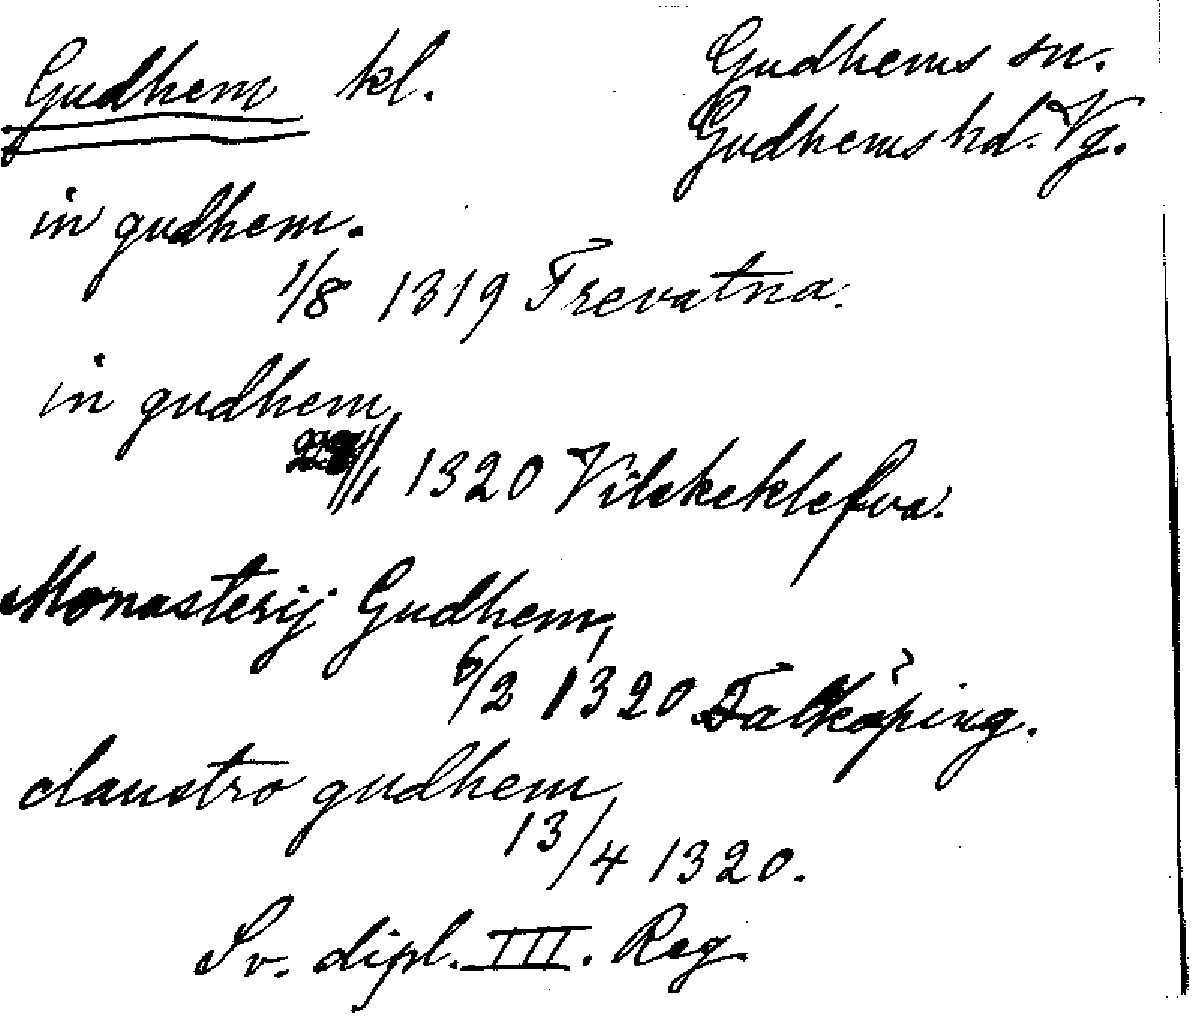 Gudhem kl. Gudhems sn.
Gudhems hd. Vg.
in gudhem.
1/8 1319 Trevatna.
in gudhem,
/1 1320 Vilskeklefva.
Monasterij Gudhem,
6/2 1320 Falköping.
claustro gudhem,
13/4 1320.
Sv. dipl. III. Reg.